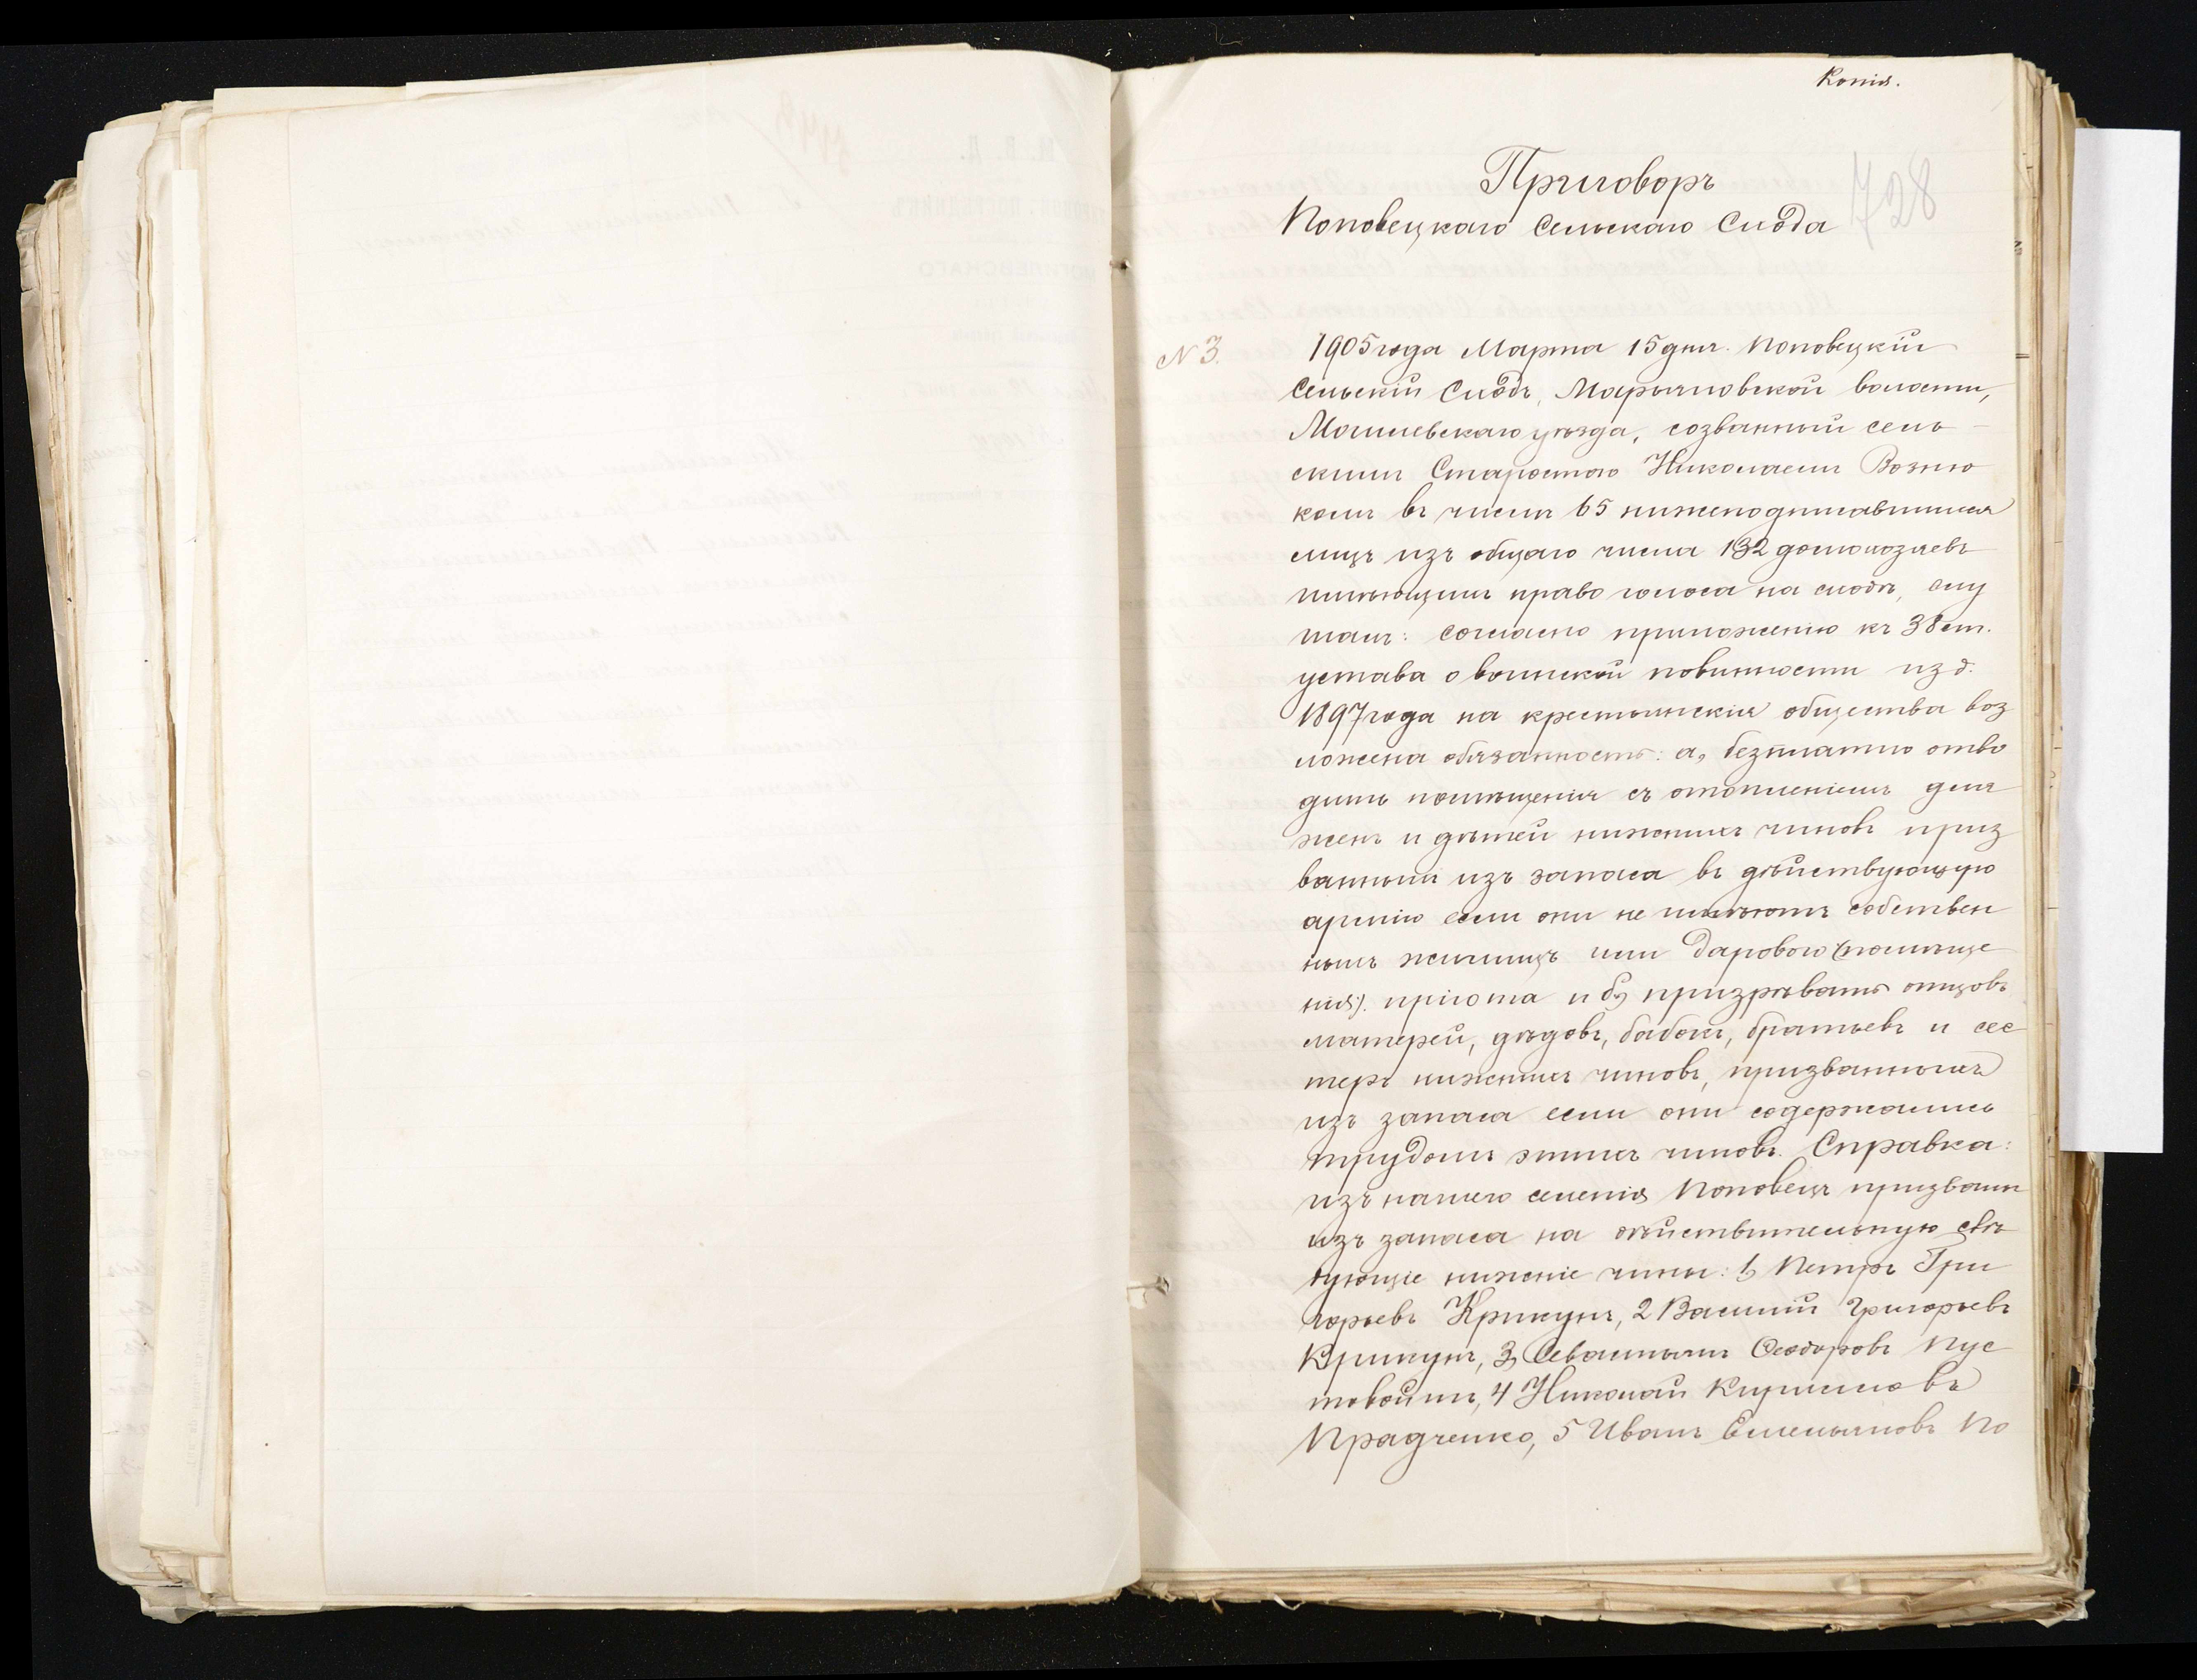 Копія.
728
Приговоръ
Поповецкаго Сельскаго Схода
№ 3.
1905 года Марта 15 дня. Поповецкій
Сельскій Сходъ, Марьяновской волости,
Могилевскаго уѣзда, созванный сель
скимъ Старостою Николаемъ Возню
комъ въ числѣ 65 нижеподписавшихся
лицъ изъ общаго числа 132 домохозяевъ
имѣющихъ право голоса на сходѣ, слу
шали: согласно приложенію къ 38 ст.
устава о воинской повинности изд.
1897 года на крестьянскія общества воз
ложена обязанность: а, безплатно отво
дить помѣщенія съ отопленіемъ для
женъ и дѣтей нижнихъ чиновъ приз
ванныхъ изъ запаса въ дѣйствующую
армію если они не имѣютъ собствен
ныхъ жилищъ или дарового (помѣще
нія). пріюта и б, призрѣвать отцовъ
матерей, дѣдовъ, бабокъ, братьевъ и сес
теръ нижнихъ чиновъ, призванныхъ
изъ запаса если они содержались
трудомъ этихъ чиновъ. Справка:
изъ нашего селенія Поповецъ призваны
изъ запаса на дѣйствительную слѣ
дующіе нижніе чины: 1, Петръ Гри
горьевъ Крикунъ, 2 Василій Григорьевъ
Крикунъ, 3, Севастьянъ Ѳеодоровъ Пус
товойтъ, 4 Николай Кирилловъ
Прадченко, 5 Иванъ Емельяновъ По